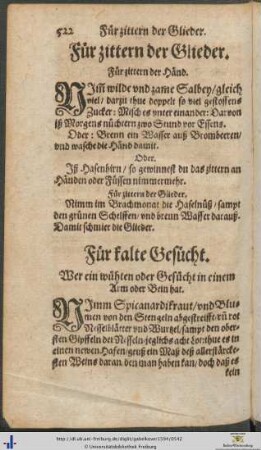 522 Für zittern der Glieder.
Für zittern der Glieder.
Für zittern der Händ.
NIm wilde vnd zame Salbey/gleich
viel/ darzu thue doppelt so viel gestossens
Zucker: Misch es vnter einander: Daruon
iß Morgens nüchtern zwo Stund vor Essens.
Oder: Brenn ein Wasser auß Brombeeren/
vnd wasche die Händ damit.
Oder.
Iß Hasenhirn/ so gewinnest du das zittern an
Händen oder Füssen nimmermehr.
Für zittern der Glieder.
Nimm im Brachmonat die Haselnüß/ sampt
den grünen Schelffen/ vnd brenn Wasser darauß.
Damit schmier die Glieder.
Für kalte Gesücht.
Wer ein wühten oder Gesücht in einem
Arm oder Bein hat.
NImm Spicanardikraut/vnd Blu-
men von den Stengeln abgestreifft/ rot
Nesselblätter vnd Wurtzel/ sampt den ober-
sten Gipffeln der Nesseln/jeglichs acht Lot:thue es in
einen newen Hafen/geuß ein Maß deß allerstärcke-
sten Weins daran/den man haben kan/ doch daß es
kein
http://dl.ub.uni-freiburg.de/diglit/gabelkover1594/0542
© Universitätsbibliothek Freiburg